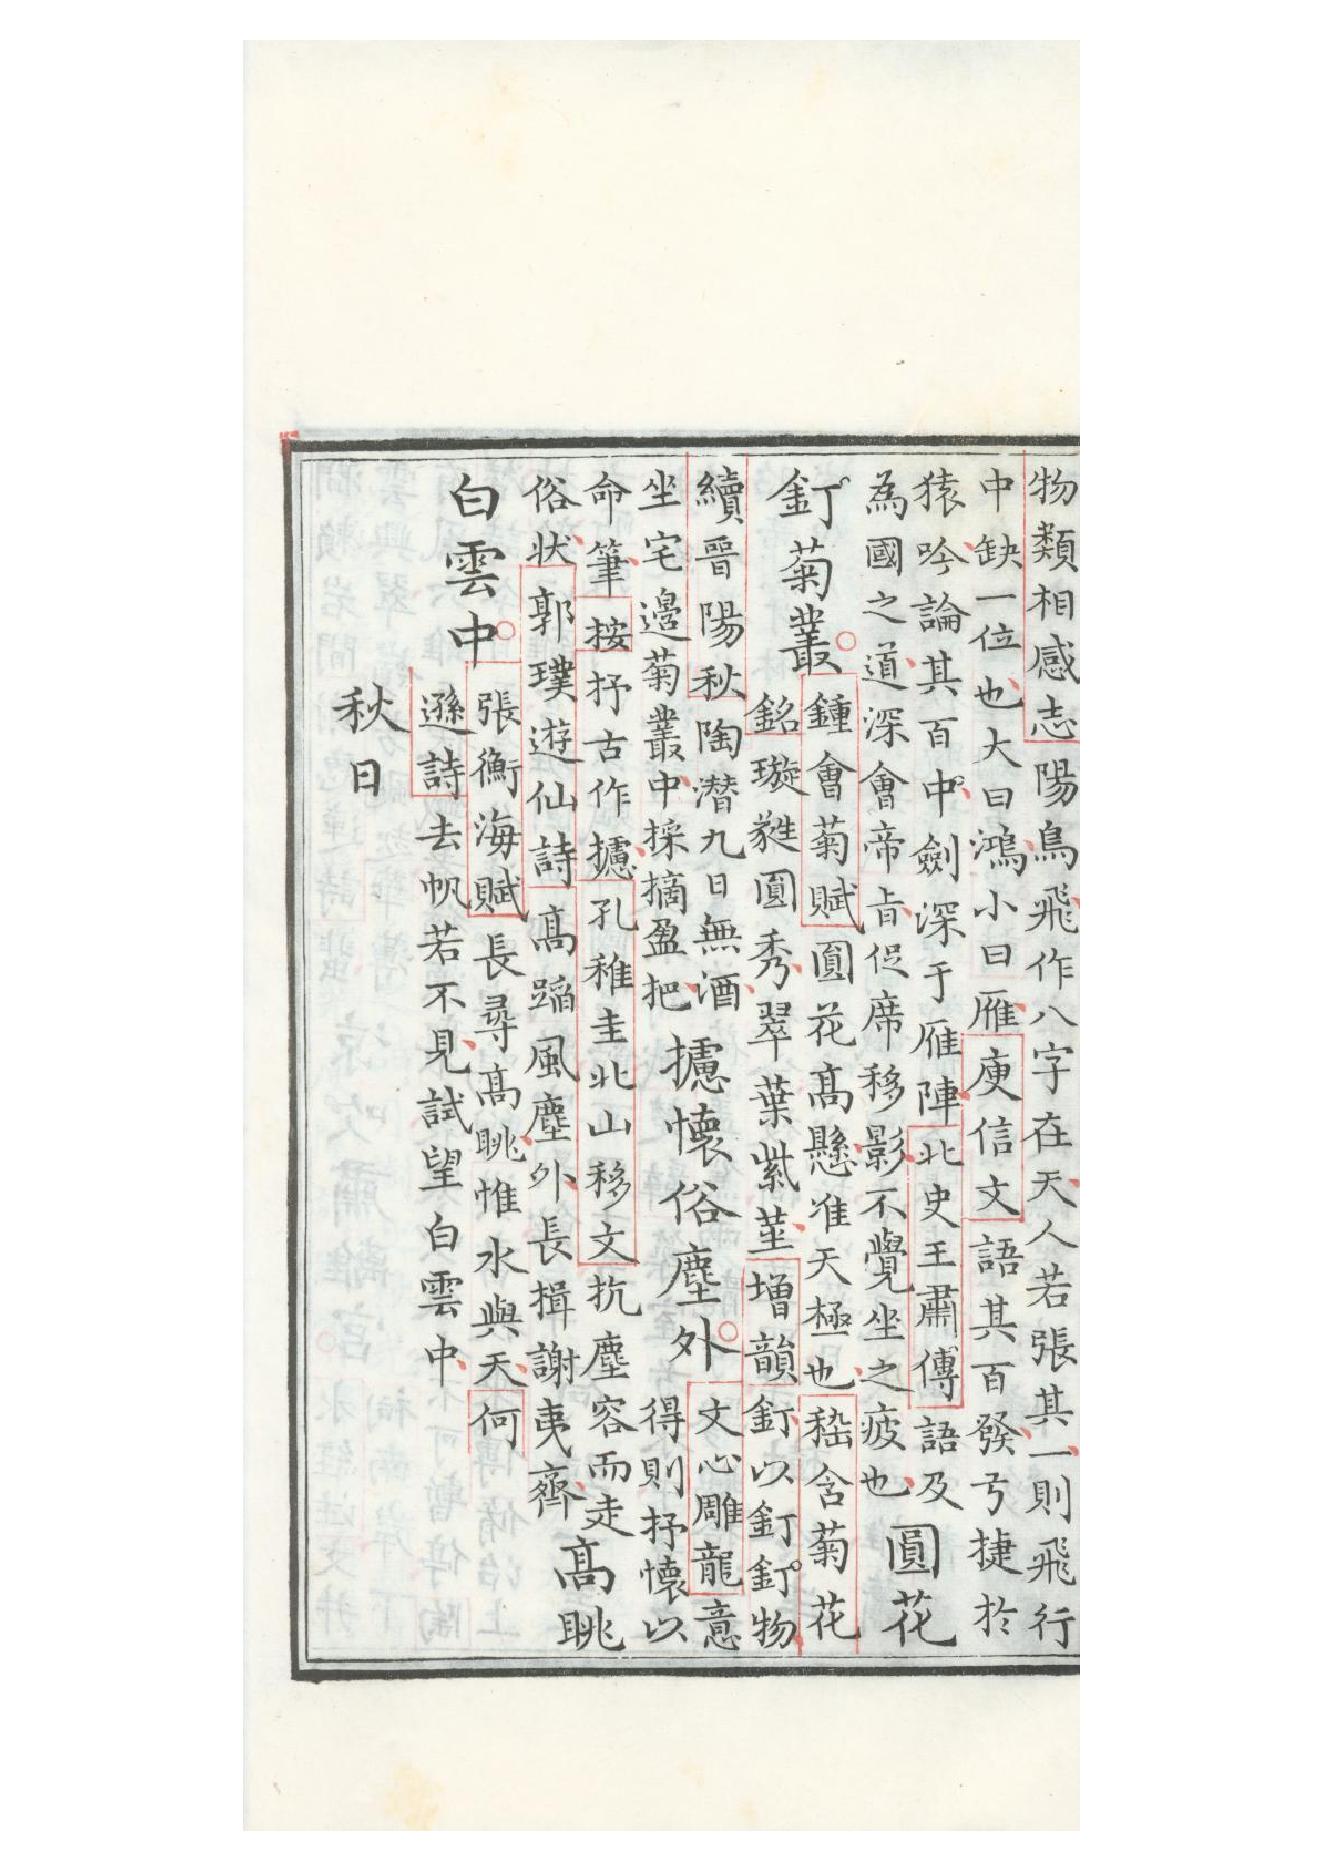 物類相感志陽鳥飛作八字在天人若張其一則飛行
中缺一位也大曰鴻小曰雁庾信文語其百發弓捷於
猿吟論其百中劍深于雁陣北史王肅傳語及
為國之道深會帝旨促席移影不覺坐之疲也
圓花
釘菊叢
鍾會菊賦圓花高懸准天極也嵇含菊花
銘璇蕤圓秀翠葉紫莖增韻釘以釘釘物
續晉陽秋陶潛九日無酒
坐宅邊菊叢中採摘盈把
攄懷俗塵外
文心雕龍意
得則抒懷以
命筆按抒古作攄孔稚圭北山移文抗塵容而走
俗狀郭璞遊仙詩高蹈風塵外長揖謝夷齊
高眺
白雲中
張衡海賦長尋高眺惟水與天何
遜詩去帆若不見試望白雲中
秋日